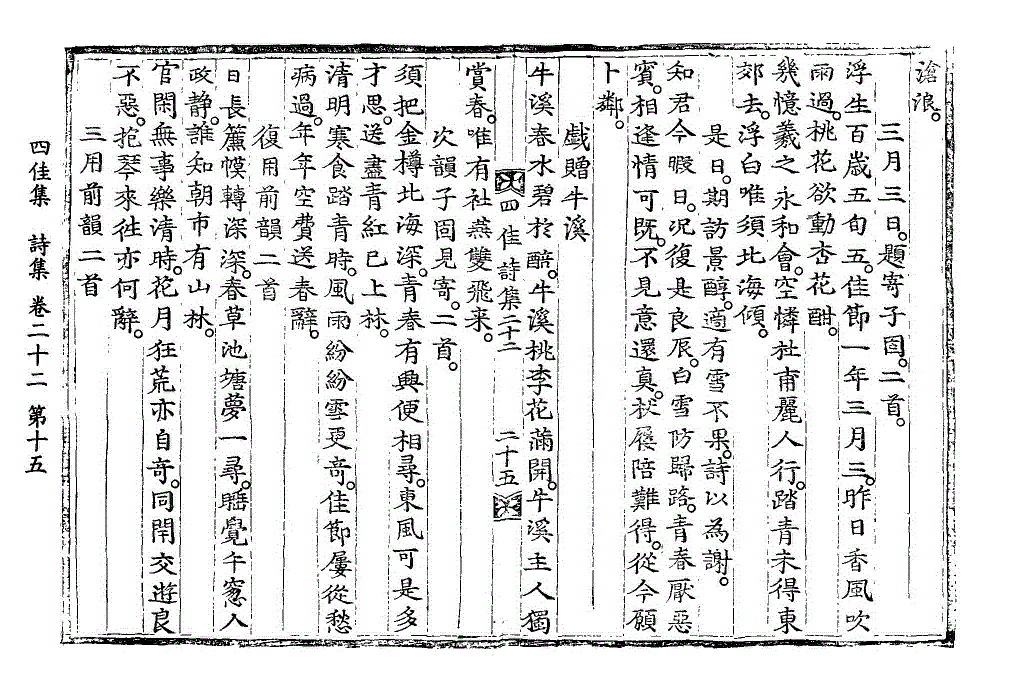 滄浪。
三月三日。題寄子固。二首。
浮生百歲五旬五。佳節一年三月三。昨日香風吹
雨過。桃花欲動杏花酣。
幾憶羲之永和會。空憐杜甫麗人行。踏青未得東
郊去。浮白唯須北海傾。
是日。期訪景醇。適有雪不果。詩以為謝。
知君今暇日。況復是良辰。白雪防歸路。青春厭惡
賓。相逢情可既。不見意還眞。杖屨陪難得。從今願
卜鄰。
戲贈牛溪
牛溪春水碧於醅。牛溪桃李花滿開。牛溪主人獨
四佳詩集二十二 二十五
賞春。唯有社燕雙飛來。
次韻子固見寄。二首。
須把金樽北海深。靑春有興便相尋。東風可是多
才思。送盡靑紅已上林。
淸明寒食踏靑時。風雨紛紛雪更奇。佳節屢從愁
病過。年年空費送春辭。
復用前韻二首
日長簾幙轉深深。春草池塘夢一尋。睡覺午窓人
政静。誰知朝市有山林。
官閑無事樂淸時。花月狂荒亦自奇。同閈交遊良
不惡。抱琴來往亦何辭。
三用前韻二首
四佳集 詩集 卷二十二 第十五